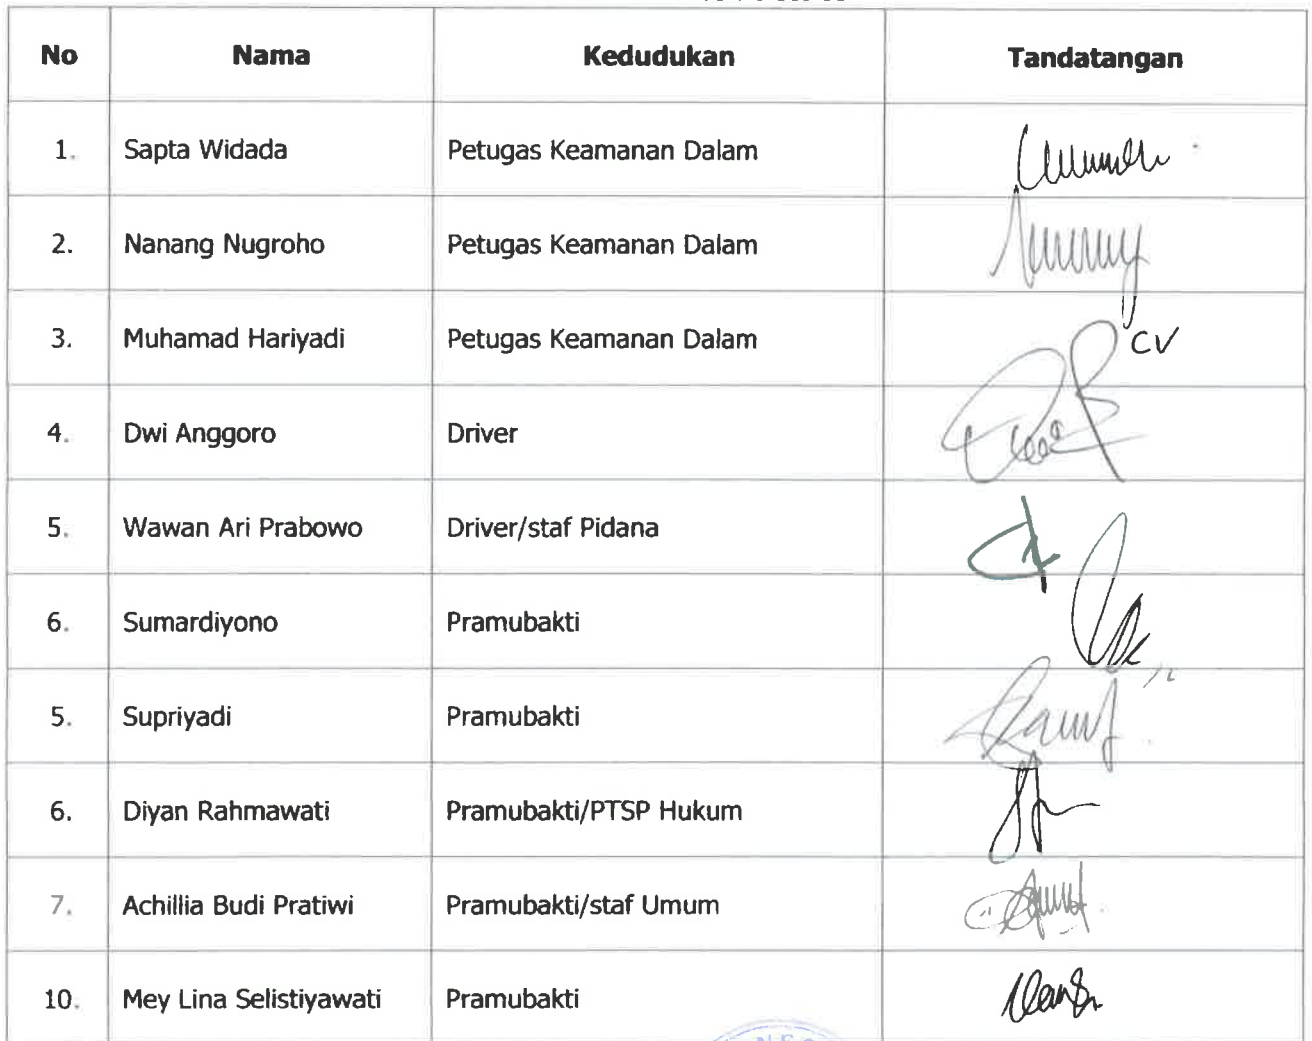 No Nama Kedudukan Tandatangan
1. Sapta Widada Petugas Keamanan Dalam
2. Nanang Nugroho Petugas Keamanan Dalam
3. Muhamad Hariyadi Petugas Keamanan Dalam
CV
4. Dwi Anggoro Driver
5. Wawan Ari Prabowo Driver/staf Pidana
6. Sumardiyono Pramubakti
5. Supriyadi Pramubakti
6. Diyan Rahmawati Pramubakti/PTSP Hukum
7. Achillia Budi Pratiwi Pramubakti/staf Umum
10. Mey Lina Selistiyawati Pramubakti